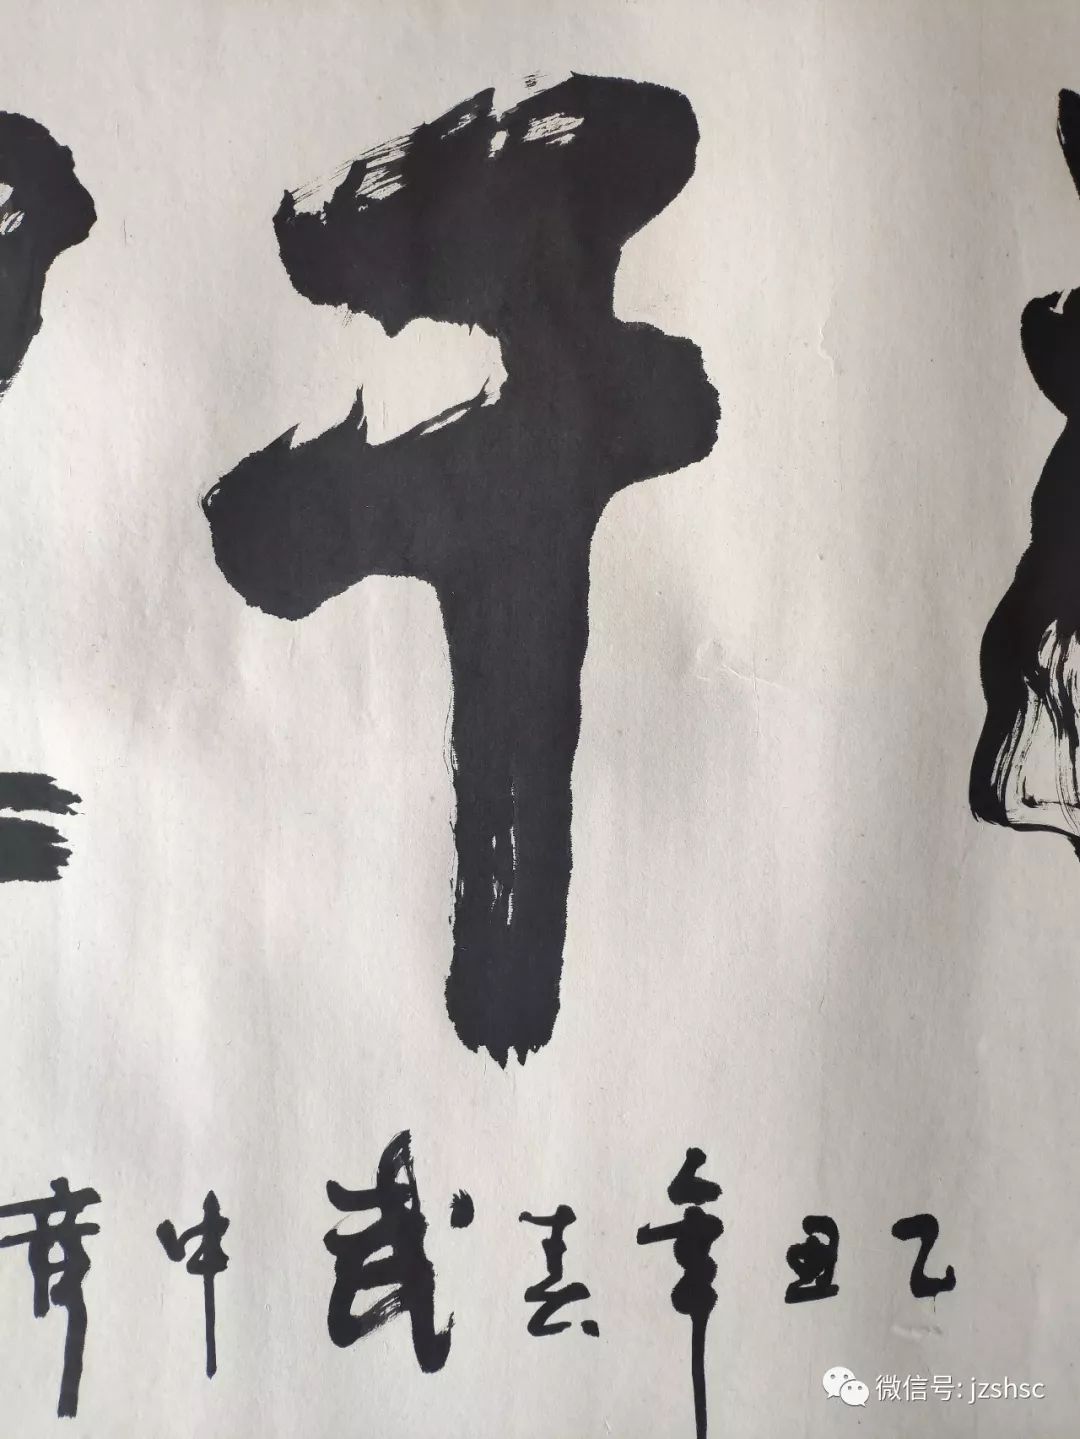 千
乙丑年春武中奇
微信号: jzshsc